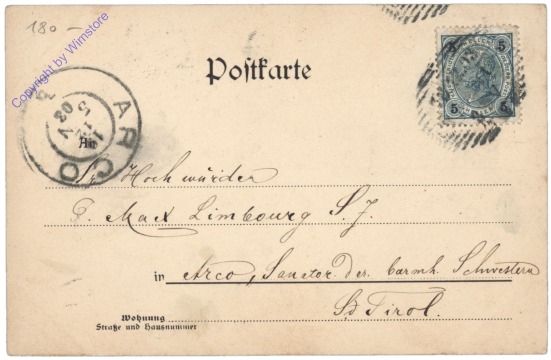 180 -
Copyright by Wimstore
Postkarte
5 5
ARCO
An
Sr Hochwürden
P. Max Limbourg S. J.
in Arco, Sanator. der barmh. Schwestern
Sd Tirol.
Wohnung
Straße und Hausnummer